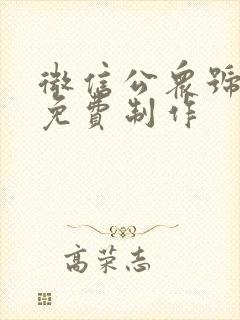 微信公众號
免費制作
高荣志